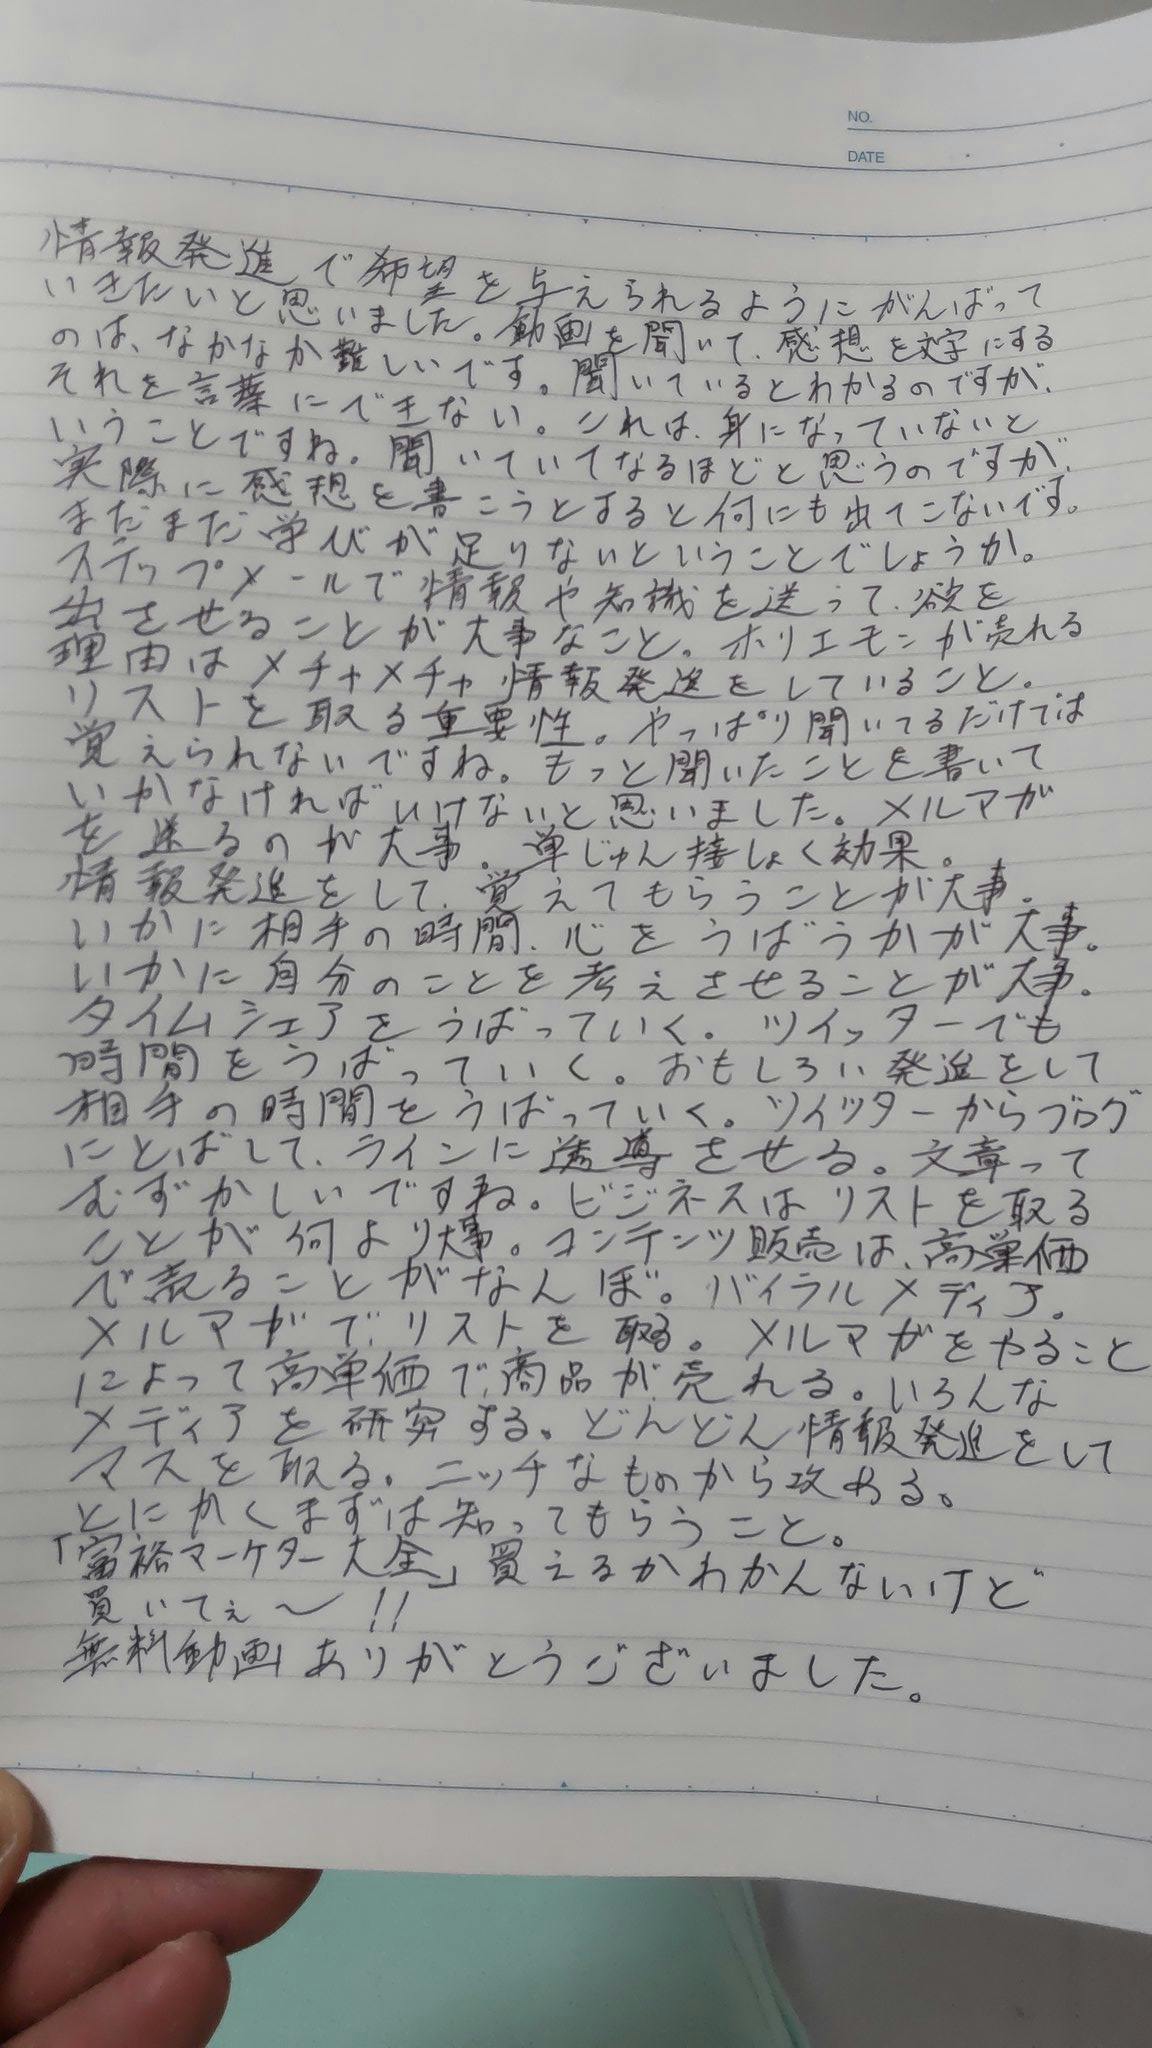 NO.
DATE
情報発進で希望を与えられるようにがんばって
いきたいと思いました。動画を聞いて、感想を文字にする
のは、なかなか難しいです。聞いているとわかるのですが、
それを言葉にできない。これは、身になっていないと
いうことですね。聞いていてなるほどと思うのですが、
実際に感想を書こうとすると何にも出てこないです。
まだまだ学びが足りないということでしょうか。
ステップメールで情報や知識を送って、欲を
出させることが大事なこと。ホリエモンが売れる
理由はメチャメチャ情報発進をしていること。
リストを取る重要性。やっぱり聞いてるだけでは
覚えられないですね。もっと聞いたことを書いて
いかなければいけないと思いました。メルマガ
を送るのが大事。単じゅん接しょく効果。
情報発進をして、覚えてもらうことが大事。
いかに相手の時間、心をうばうかが大事。
いかに自分のことを考えさせることが大事。
タイムシェアをうばっていく。ツイッターでも
時間をうばっていく。おもしろい発進をして
相手の時間をうばっていく。ツイッターからブログ
にとばして、ラインに誘導させる。文章って
むずかしいですね。ビジネスはリストを取る
ことが何より大事。コンテンツ販売は、高単価
で売ることがなんぼ。バイラルメディア。
メルマガで、リストを取る。メルマガをやること
によって高単価で、商品が売れる。いろんな
メディアを研究する。どんどん情報発進をして
マスを取る。ニッチなものから攻める。
とにかくまずは知ってもらうこと。
「富裕マーケター大全」買えるかわかんないけど
買いてぇ〜!!
無料動画ありがとうございました。